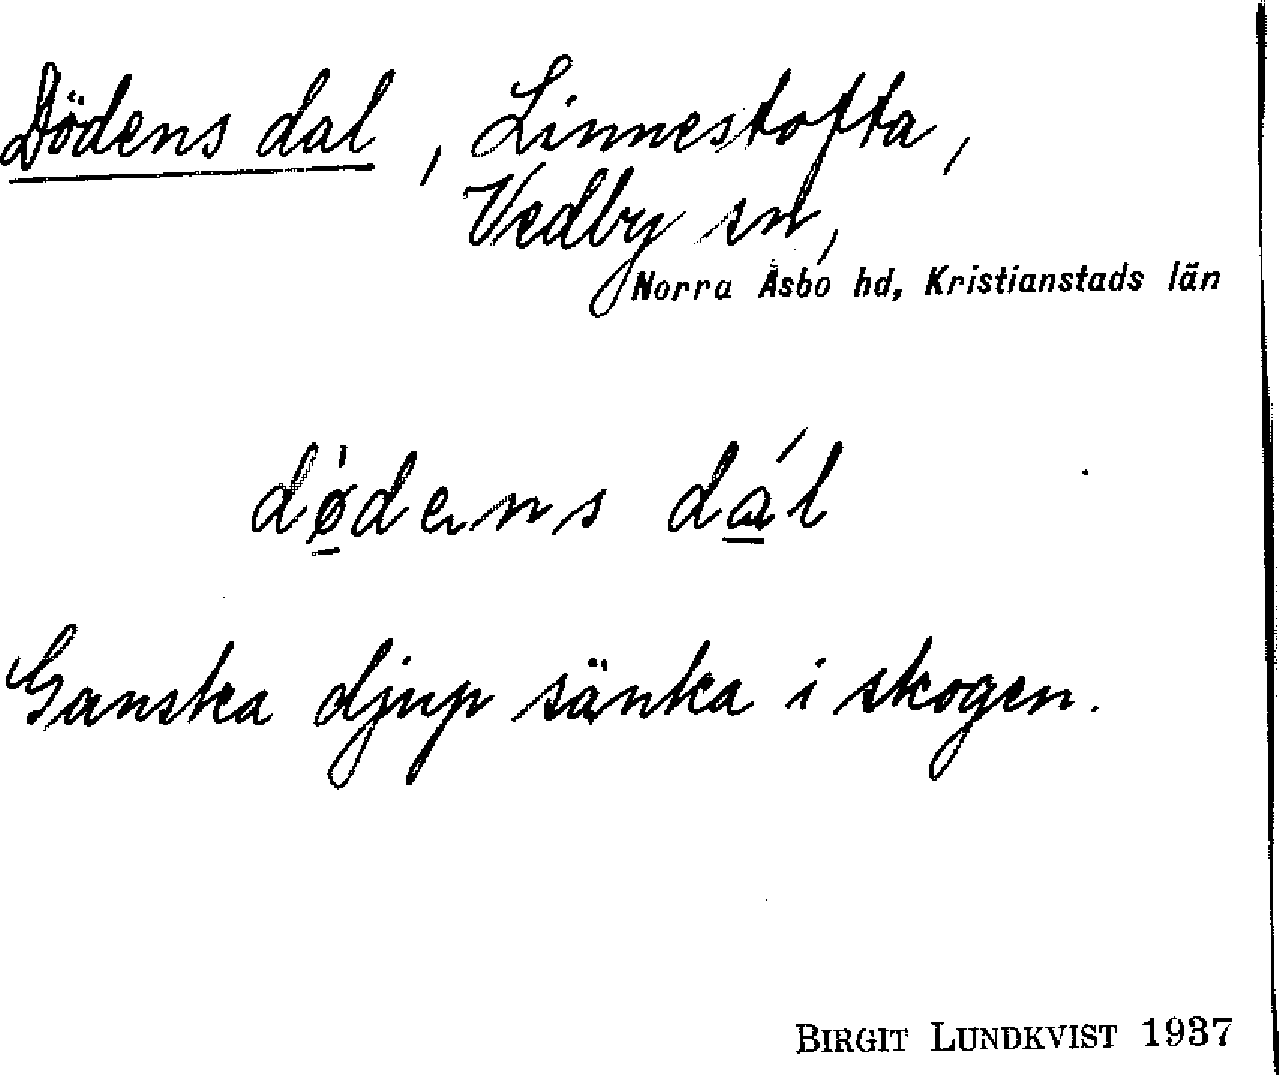 Dödens dal, Linnestofta,
Vedby sn,
Norra Åsbo hd, Kristianstads län
dø̱̀dens dá̱l
Ganska djup sänka i skogen.
BIRGIT LUNDKVIST 1937